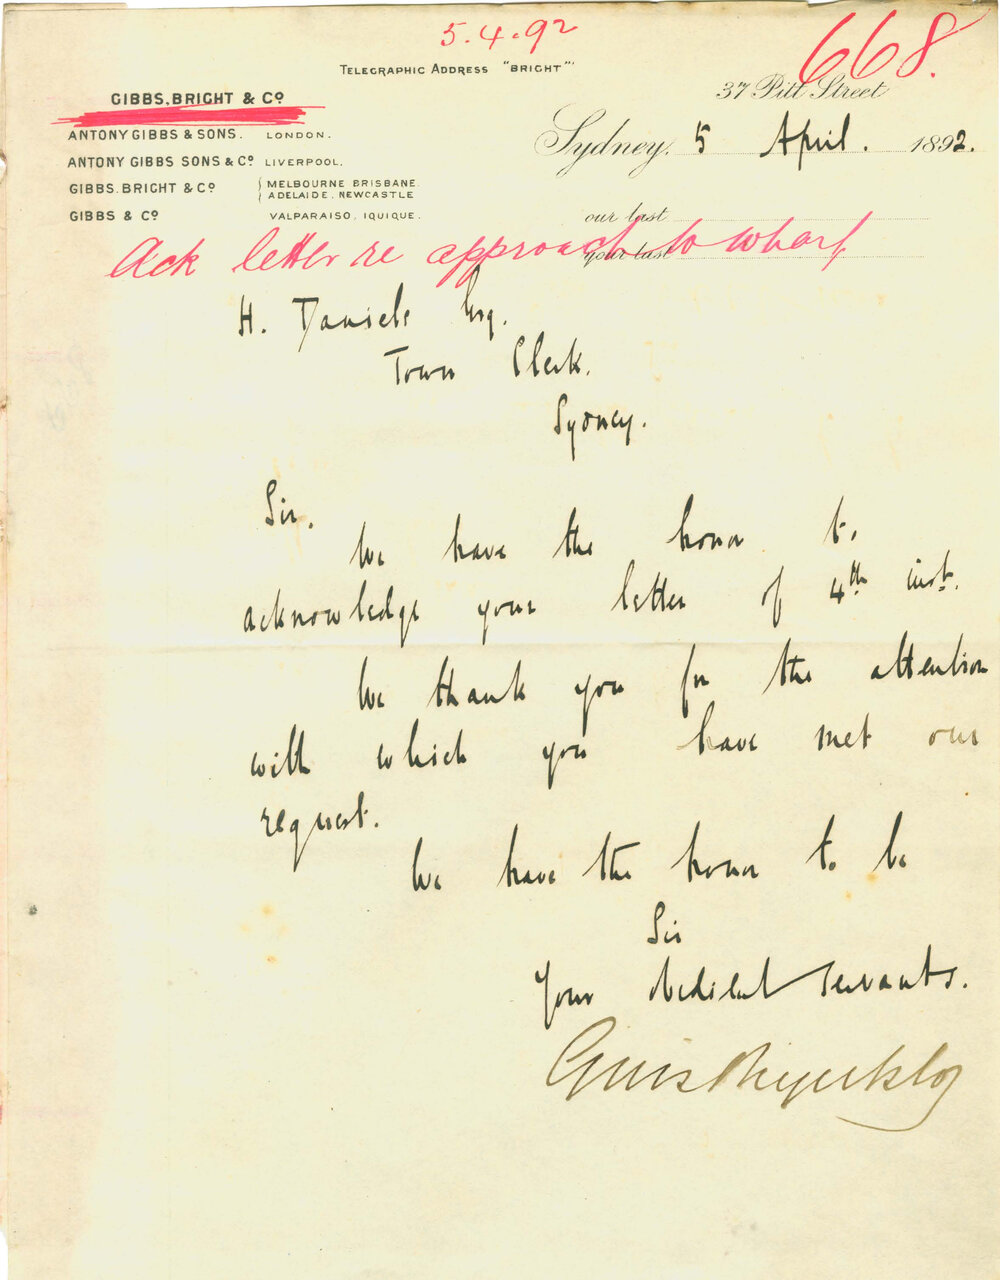 5.4.92
668.
TELEGRAPHIC ADDRESS "BRIGHT"
37 Pitt Street
GIBBS, BRIGHT & Co
Sydney, 5 April. 1892.
ANTONY GIBBS & SONS. LONDON.
ANTONY GIBBS SONS & Co LIVERPOOL.
GIBBS. BRIGHT & Co { MELBOURNE BRISBANE.
ADELAIDE. NEWCASTLE
GIBBS & Co VALPARAISO. IQUIQUE.
our last
your last
Ack letter re approach to wharf
H. Daniels Esq.
Town Clerk.
Sydney.
Sir.
We have the honor to
acknowledge your letter of 4th inst.
We thank you for the attention
with which you have met our
request.
We have the honor to be
Sir
Your obedient servants.
Gibbs Bright & Co